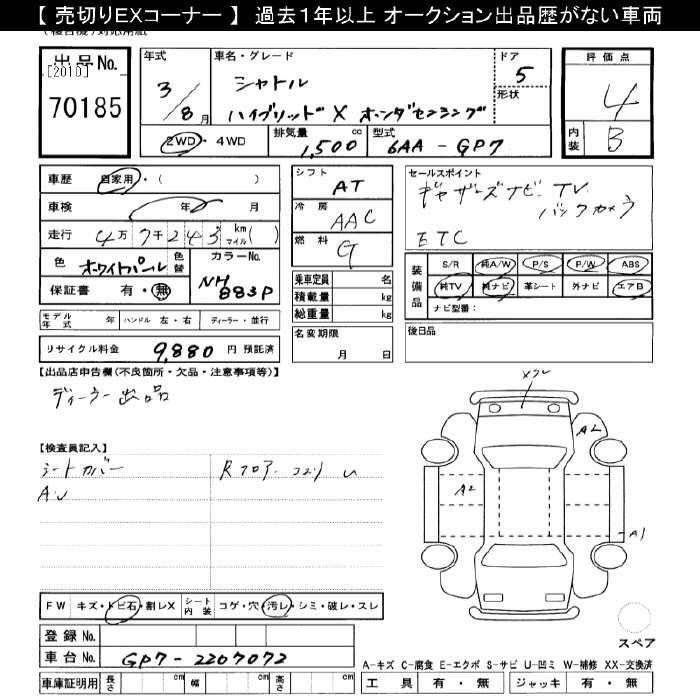 【 売切りEXコーナー 】 過去1年以上 オークション出品歴がない車両
(複合機)対応用紙
出品No.
[2010]
70185
年式
3/8月
車名・グレード
シャトル
ハイブリッド X ホンダセンシング
ドア
5
形状
評価点
4
内装
B
2WD・4WD
排気量
1,500 cc
型式
6AA-GP7
車歴 自家用・( )
車検 年 月
走行 4万7千243 km マイル( )
色 ホワイトパール
色替
カラーNo.
NH883P
保証書 有・無
シフト
AT
冷房
AAC
燃料
G
乗車定員 名
積載量 kg
総重量 kg
セールスポイント
ギャザーズナビ TV
バックカメラ
ETC
装備品
S/R 純A/W P/S P/W ABS
純TV 純ナビ 革シート 外ナビ エアB
ナビ型番:
モデル年式 年 ハンドル 左・右 ディーラー・並行
リサイクル料金 9,880 円 預託済
名変期限
月 日
後日品
【出品店申告欄(不良箇所・欠品・注意事項等)】
ディーラー出品
【検査員記入】
シートカバー
AU
Rフロア コスリ
Xワレ
A2
A2
A1
スペア
FW キズ・トビ石・割レX シート内装 コゲ・穴・汚レ・シミ・破レ・スレ
登録No.
車台No. GP7-2207072
A-キズ C-腐食 E-エクボ S-サビ U-凹ミ W-補修 XX-交換済
車庫証明用 長さ cm 幅 cm 高さ cm
工具 有・無 ジャッキ 有・無